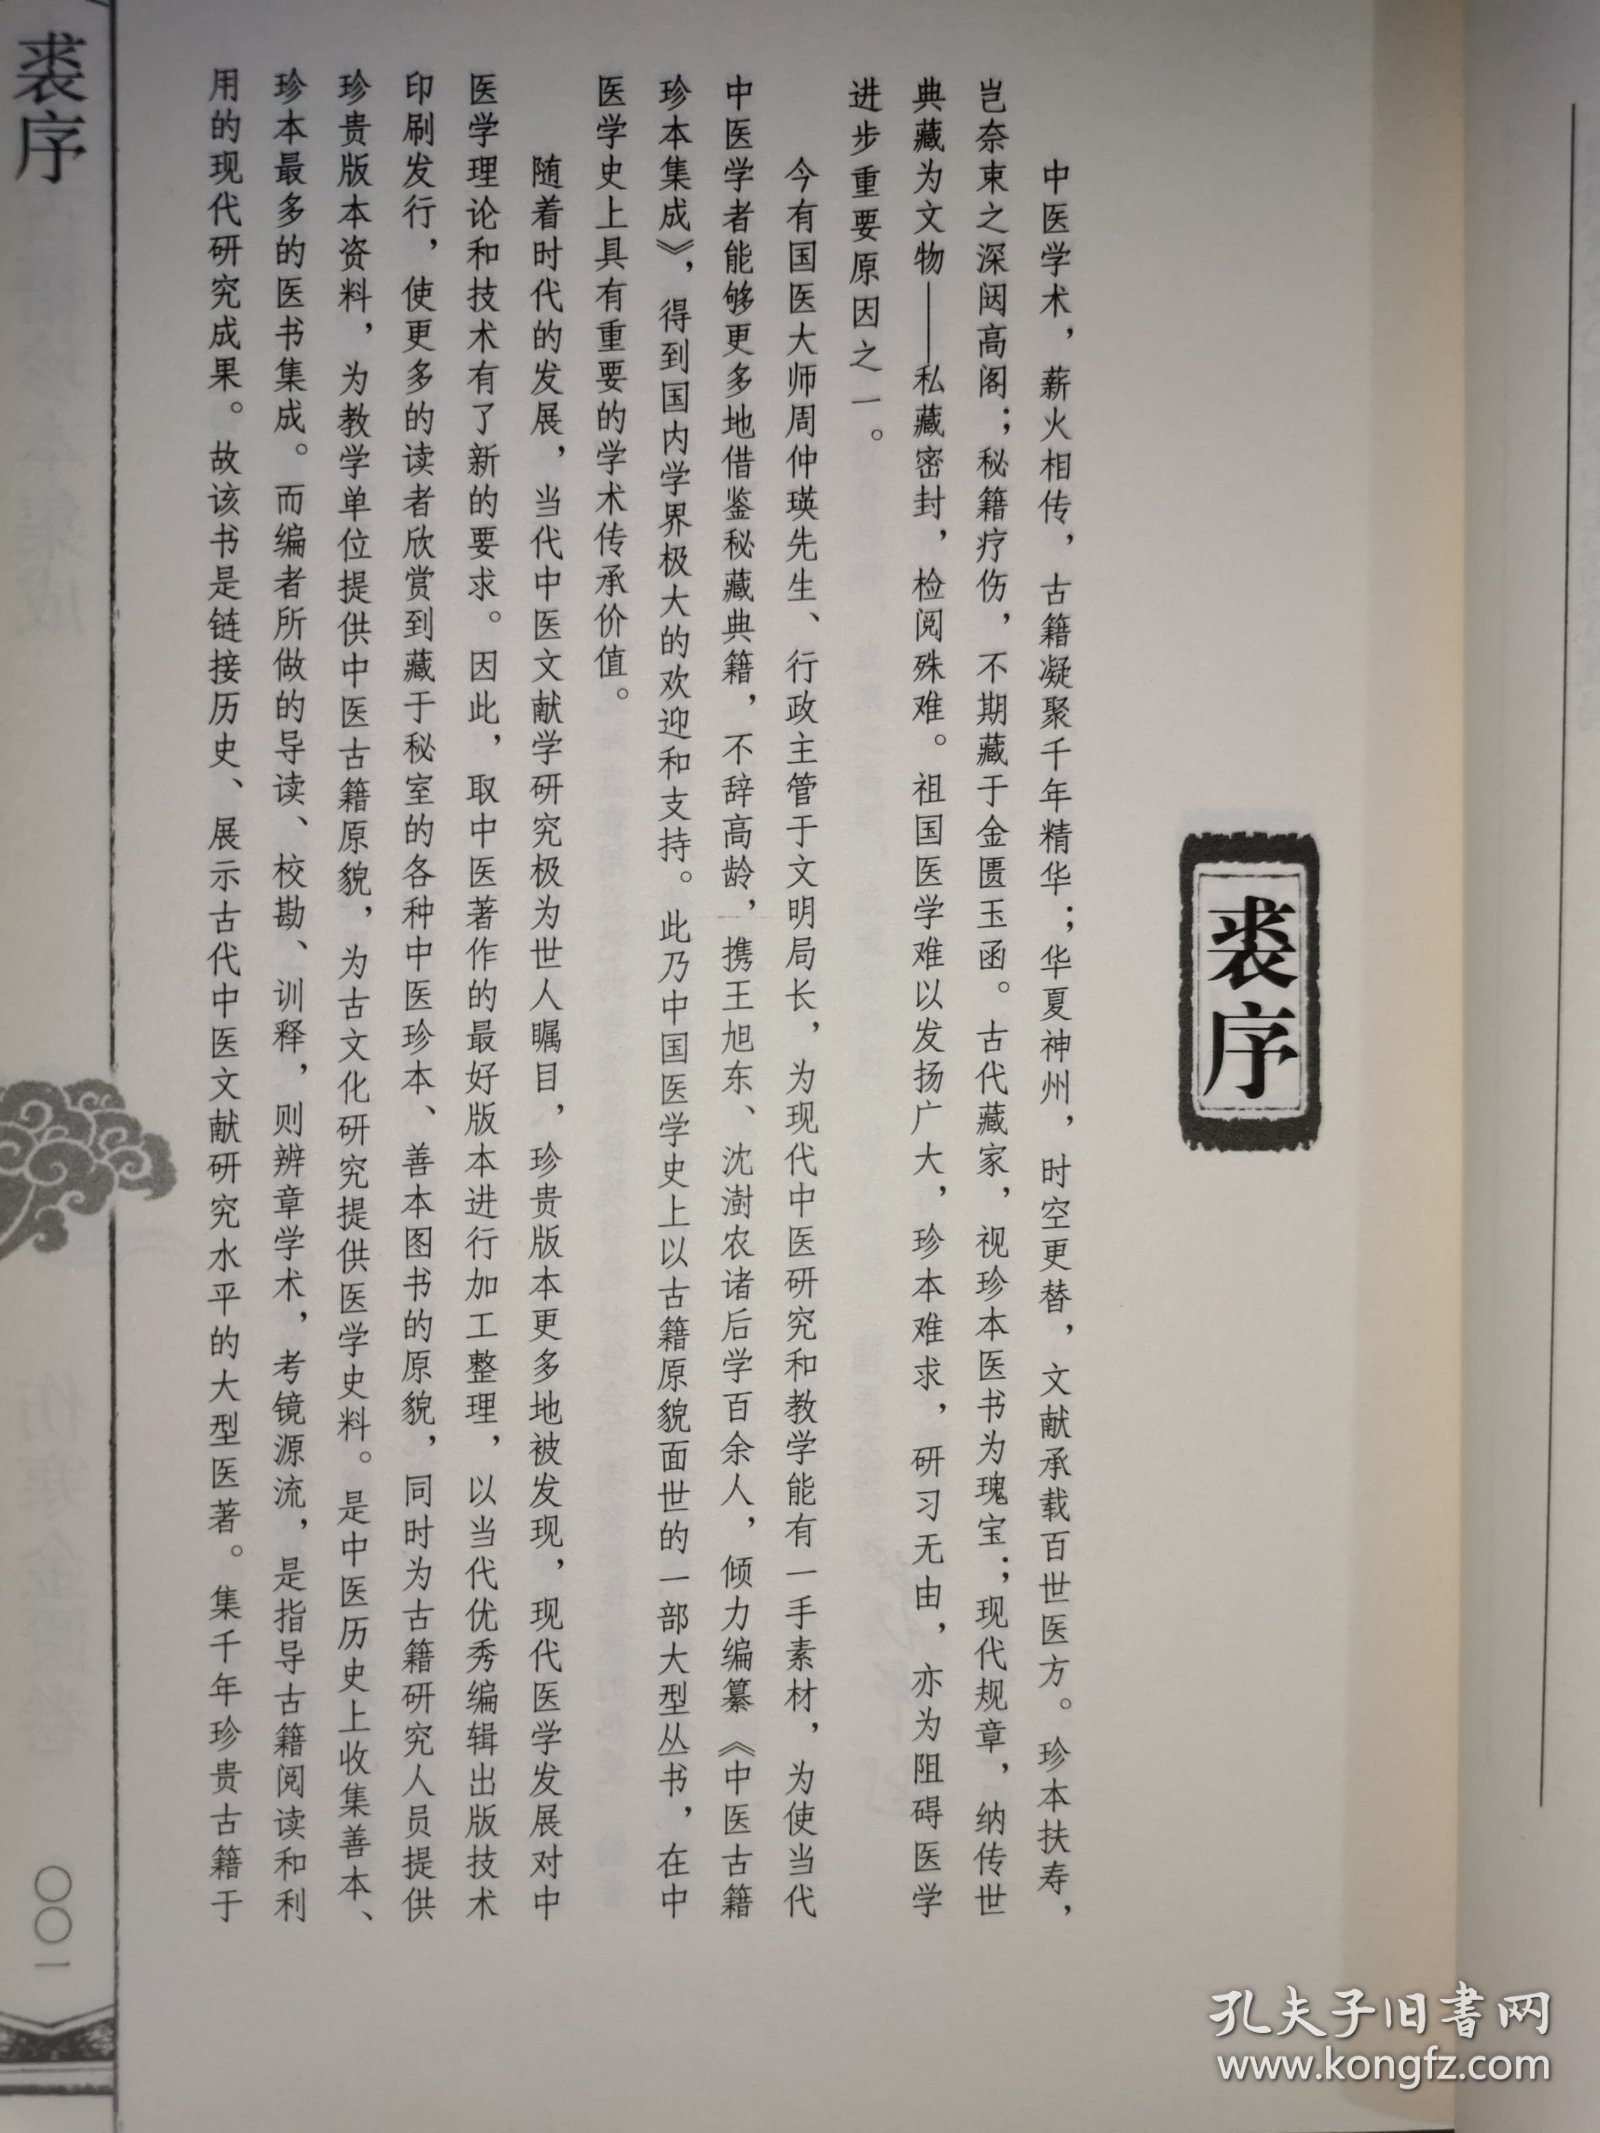 裘序
中医学术，薪火相传，古籍凝聚千年精华；华夏神州，时空更替，文献承载百世医方。珍本扶寿，
岂奈束之深闼高阁；秘籍疗伤，不期藏于金匮玉函。古代藏家，视珍本医书为瑰宝；现代规章，纳传世
典藏为文物——私藏密封，检阅殊难。祖国医学难以发扬广大，珍本难求，研习无由，亦为阻碍医学
进步重要原因之一。
今有国医大师周仲瑛先生、行政主管于文明局长，为现代中医研究和教学能有一手素材，为使当代
中医学者能够更多地借鉴秘藏典籍，不辞高龄，携王旭东、沈澍农诸后学百余人，倾力编纂《中医古籍
珍本集成》，得到国内学界极大的欢迎和支持。此乃中国医学史上以古籍原貌面世的一部大型丛书，在中
医学史上具有重要的学术传承价值。
随着时代的发展，当代中医文献学研究极为世人瞩目，珍贵版本更多地被发现，现代医学发展对中
医学理论和技术有了新的要求。因此，取中医著作的最好版本进行加工整理，以当代优秀编辑出版技术
印刷发行，使更多的读者欣赏到藏于秘室的各种中医珍本、善本图书的原貌，同时为古籍研究人员提供
珍贵版本资料，为教学单位提供中医古籍原貌，为古文化研究提供医学史料。是中医历史上收集善本、
珍本最多的医书集成。而编者所做的导读、校勘、训释，则辨章学术，考镜源流，是指导古籍阅读和利
用的现代研究成果。故该书是链接历史、展示古代中医文献研究水平的大型医著。集千年珍贵古籍于
裘序
〇〇一
孔夫子旧书网
www.kongfz.com